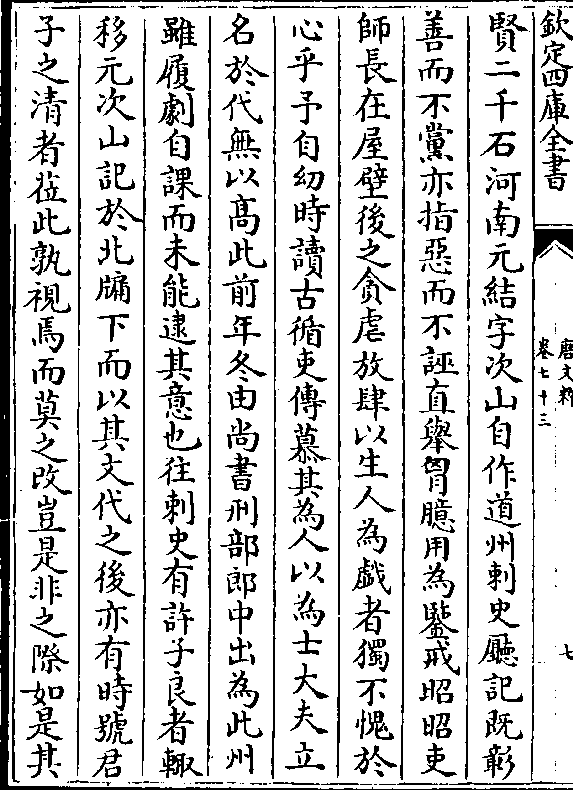 欽定四庫全書
唐文粹
卷七十三
七
賢二千石河南元結字次山自作道州刺史廳記既彰
善而不黨亦指惡而不誣直舉胷臆用為鑒戒昭昭吏
師長在屋壁後之貪虐放肆以生人為戲者獨不愧於
心乎予自幼時讀古循吏傳慕其為人以為士大夫立
名於代無以髙此前年冬由尚書刑部郎中出為此州
雖履劇自課而未能逮其意也往刺史有許子良者輙
移元次山記於北牖下而以其文代之後亦有時號君
子之清者莅此孰視焉而莫之改豈是非之際如是其